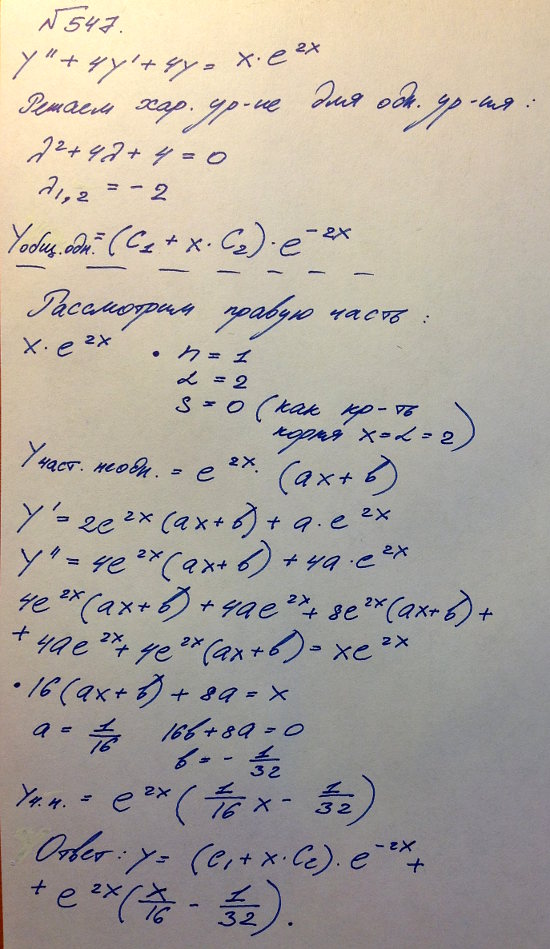 №547.
y'' + 4y' + 4y = x·e^{2x}
Решаем хар. ур-ие для одн. ур-ния:
λ² + 4λ + 4 = 0
λ_{1,2} = -2
Yобщ.одн. = (C₁ + x·C₂)·e^{-2x}
Рассмотрим правую часть:
x·e^{2x} • n = 1
α = 2
S = 0 (как кр-ть
корня x=α=2)
Yчаст. неодн. = e^{2x}·(ax+b)
y' = 2e^{2x}(ax+b) + a·e^{2x}
y'' = 4e^{2x}(ax+b) + 4a·e^{2x}
4e^{2x}(ax+b) + 4ae^{2x} + 8e^{2x}(ax+b) +
+ 4ae^{2x} + 4e^{2x}(ax+b) = xe^{2x}
• 16(ax+b) + 8a = x
a = 1/16 16b + 8a = 0
b = - 1/32
Yч.н. = e^{2x}(1/16 x - 1/32)
Ответ: y = (C₁ + x·C₂)·e^{-2x} +
+ e^{2x}(x/16 - 1/32).